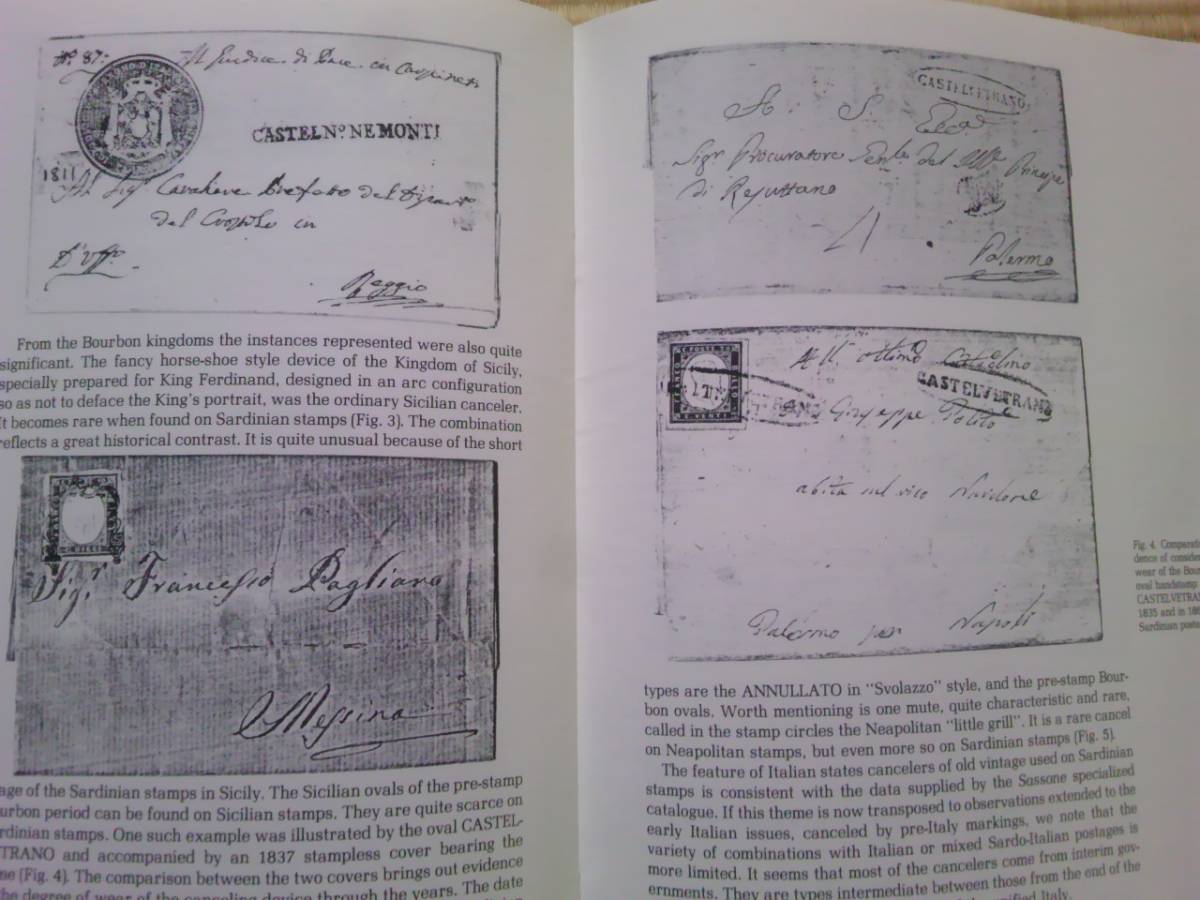 No. 87:
Il Giudice di Pace in
CASTELNo. NE MONTI
1811
Al Sigr Cavaliere Prefetto del
del Crostolo in
Reggio
From the Bourbon kingdoms the instances represented were also quite
significant. The fancy horse-shoe style device of the Kingdom of Sicily,
specially prepared for King Ferdinand, designed in an arc configuration
so as not to deface the King's portrait, was the ordinary Sicilian canceler.
It becomes rare when found on Sardinian stamps (Fig. 3). The combination
reflects a great historical contrast. It is quite unusual because of the short
Sigr. Francesco Pagliano
Messina
age of the Sardinian stamps in Sicily. The Sicilian ovals of the pre-stamp
urbon period can be found on Sicilian stamps. They are quite scarce on
rdinian stamps. One such example was illustrated by the oval CASTEL-
TRANO and accompanied by an 1837 stampless cover bearing the
me (Fig. 4). The comparison between the two covers brings out evidence
the degree of wear of the canceling device through the years. The date
CASTELVETRANO
A. S. Ecca
Sigr Procuratore Genle del Principe
di
Palermo
All' ottimo
CASTELVETRANO
Giuseppe Polito
abita sul vico Nardone
Palermo per Napoli
Fig. 4. Comparati
dence of consider
wear of the Bour
oval handstamp
CASTELVETRAN
1835 and in 186
Sardinian posta
types are the ANNULLATO in "Svolazzo" style, and the pre-stamp Bour-
bon ovals. Worth mentioning is one mute, quite characteristic and rare,
called in the stamp circles the Neapolitan "little grill". It is a rare cancel
on Neapolitan stamps, but even more so on Sardinian stamps (Fig. 5).
The feature of Italian states cancelers of old vintage used on Sardinian
stamps is consistent with the data supplied by the Sassone specialized
catalogue. If this theme is now transposed to observations extended to the
early Italian issues, canceled by pre-Italy markings, we note that the
variety of combinations with Italian or mixed Sardo-Italian postages is
more limited. It seems that most of the cancelers come from interim gov-
ernments. They are types intermediate between those from the end of the
unified Italy.